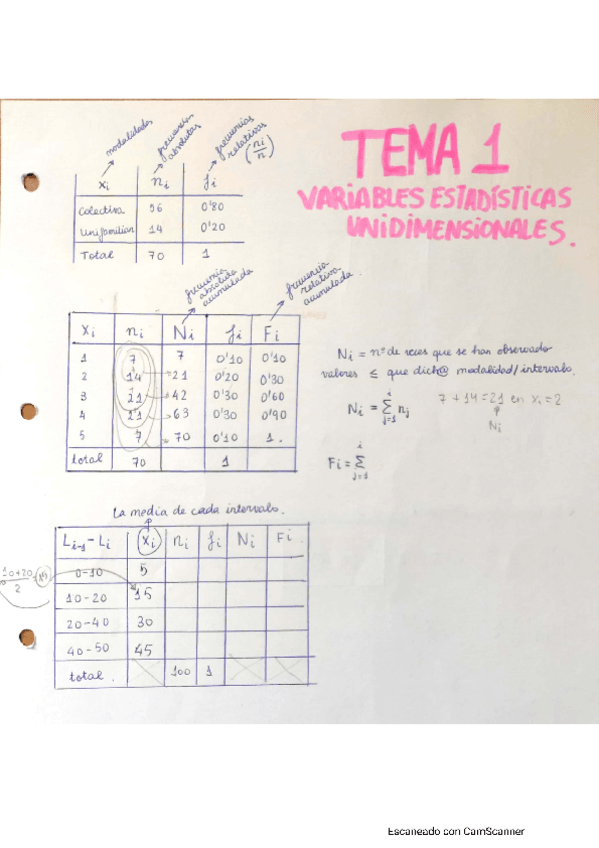 TEMA 1
VARIABLES ESTADÍSTICAS
UNIDIMENSIONALES.
modalidades
frecuencias absolutas
frecuencias relativas (ni/n)
xi ni fi
Colectiva 56 0'80
Unifamiliar 14 0'20
Total 70 1
frecuencia absoluta acumulada
frecuencia relativa acumulada.
Xi ni Ni fi Fi
1 7 7 0'10 0'10
2 14 21 0'20 0'30
3 21 42 0'30 0'60
4 21 63 0'30 0'90
5 7 70 0'10 1.
total 70 1
Ni = nº de veces que se han observado
valores ≤ que dich@ modalidad/intervalo.
Ni = i Σ j=1 nj
7 + 14 = 21 en xi = 2
Ni
Fi = i Σ j=1
La media de cada intervalo.
Li-1 - Li xi ni fi Ni Fi
0-10 5
10+20/2 = 15
10-20 15
20-40 30
40-50 45
total. 100 1
Escaneado con CamScanner